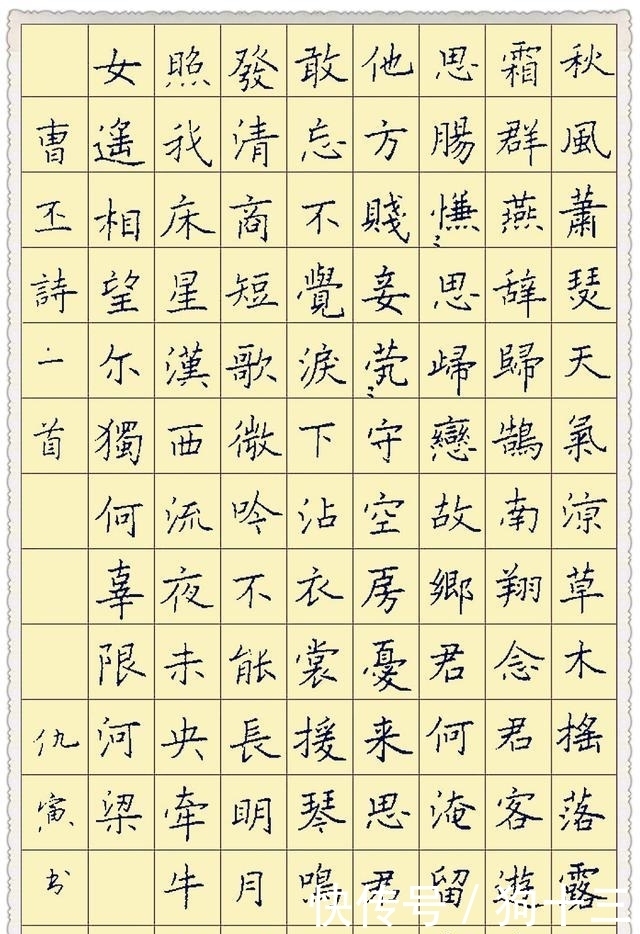 秋風蕭瑟天氣涼草木搖落露
霜群燕辞歸鵠南翔念君客遊
思腸慊々思歸戀故鄉君何淹留
他方賤妾茕々守空房憂来思君
敢忘不覺淚下沾衣裳援琴鳴
發清商短歌微吟不能長明月
照我床星漢西流夜未央牽牛
女遙相望尔獨何辜限河梁
曹丕詩一首
仇寅书
快传号/狗十三